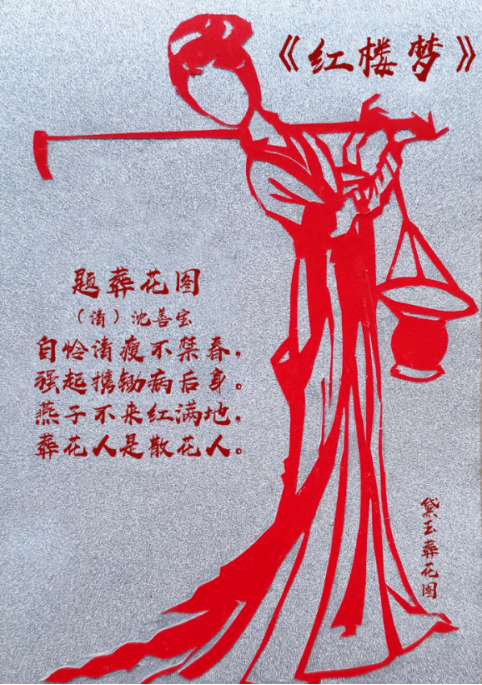 《红楼梦》
题葬花图
（清）沈善宝
自怜清瘦不禁春，
强起携锄病后身。
燕子不来红满地，
葬花人是散花人。
黛玉葬花图